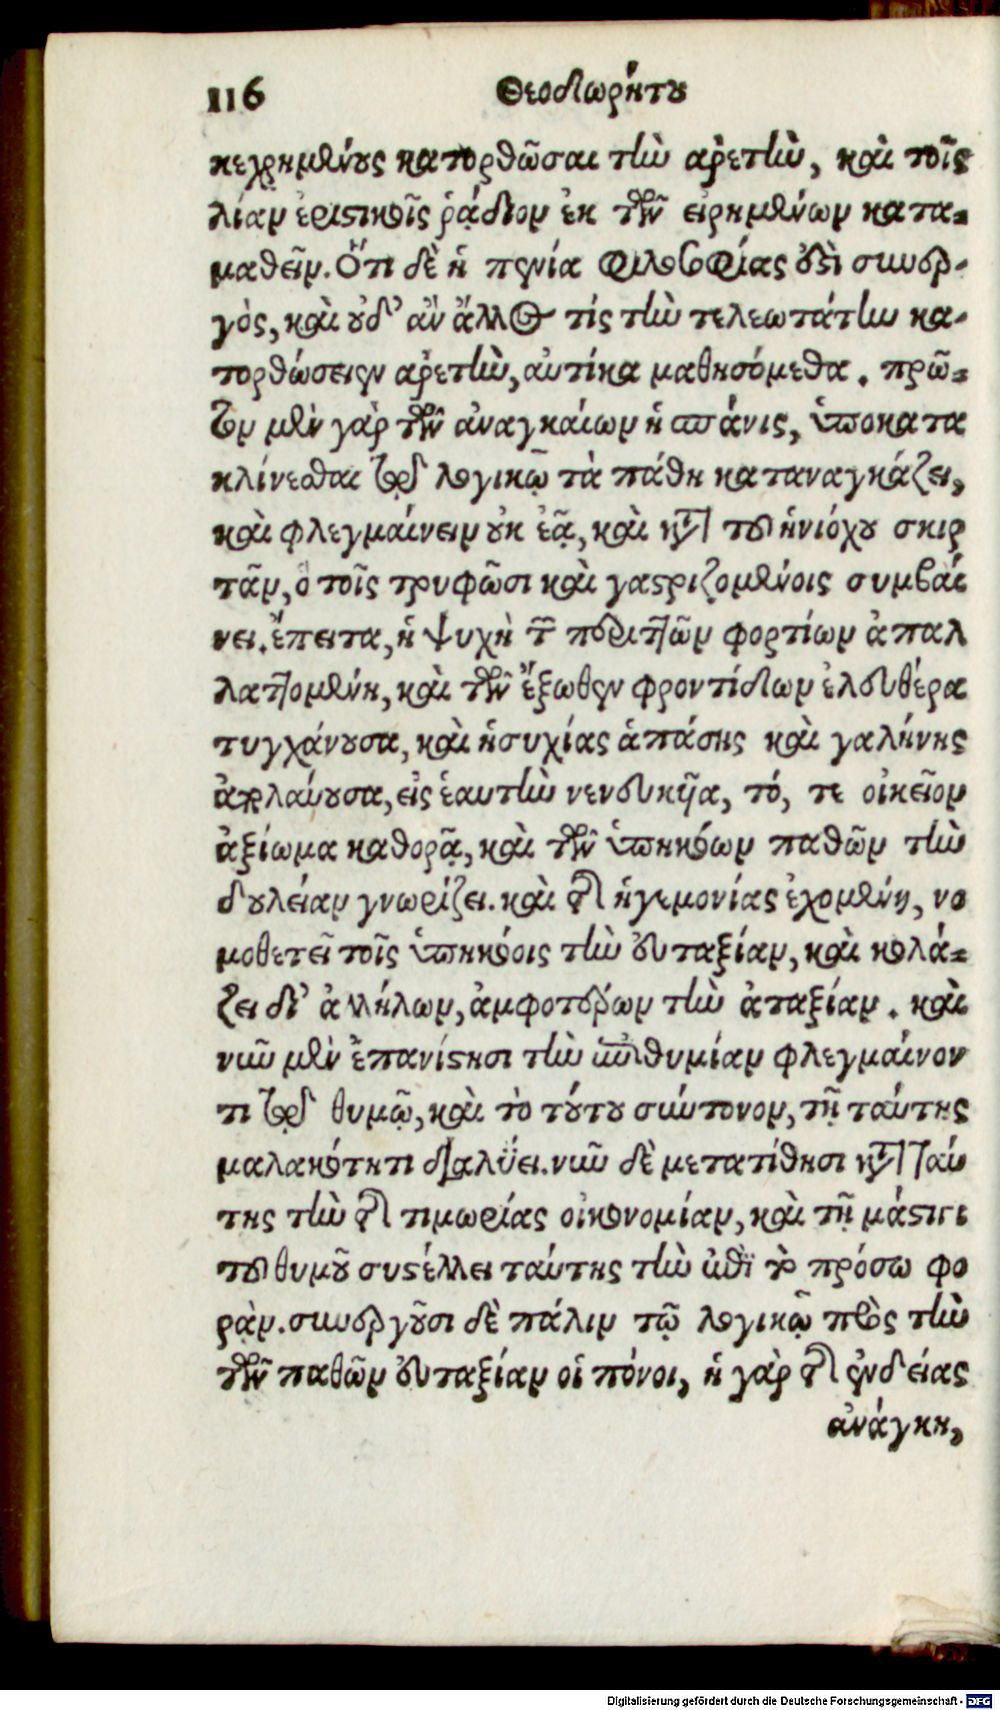 116 Θεοδωρήτου
κεχρημένους κατορθῶσαι τὴν ἀρετὴν, καὶ τοῖς
λίαν ἐριστικοῖς ῥᾴδιον ἐκ τῶν εἰρημένων κατα-
μαθεῖν. Ὅτι δὲ ἡ πενία φιλοσοφίας ἐστὶ συνερ-
γὸς, καὶ οὐδ’ ἂν ἄλλως τίς τὴν τελεωτάτην κα-
τορθώσειεν ἀρετὴν, αὐτίκα μαθησόμεθα. πρῶ-
τον μὲν γὰρ τῶν ἀναγκαίων ἡ σπάνις, ὑποκατα
κλίνεσθαι τῷ λογικῷ τὰ πάθη καταναγκάζει,
καὶ φλεγμαίνειν οὐκ ἐᾷ, καὶ κατὰ τοῦ ἡνιόχου σκιρ
τᾶν, ὃ τοῖς τρυφῶσι καὶ γαστριζομένοις συμβαί
νει. ἔπειτα, ἡ ψυχὴ τῶν περιττῶν φορτίων ἀπαλ
λαττομένη, καὶ τῶν ἔξωθεν φροντίδων ἐλευθέρα
τυγχάνουσα, καὶ ἡσυχίας ἁπάσης καὶ γαλήνης
ἀπολαύουσα, εἰς ἑαυτὴν νενευκυῖα, τό, τε οἰκεῖον
ἀξίωμα καθορᾷ, καὶ τῶν ὑπηκόων παθῶν τὴν
δουλείαν γνωρίζει. καὶ τῆς ἡγεμονίας ἐχομένη, νο
μοθετεῖ τοῖς ὑπηκόοις τὴν εὐταξίαν, καὶ κολά-
ζει δι’ ἀλλήλων, ἀμφοτέρων τὴν ἀταξίαν. καὶ
νῦν μὲν ἐπανίστησι τὴν ἐπιθυμίαν φλεγμαίνον
τι τῷ θυμῷ, καὶ τὸ τούτου σύντονον, τῇ ταύτης
μαλακότητι διαλύει. νῦν δὲ μετατίθησι κατὰ ταύ
της τὴν τῆς τιμωρίας οἰκονομίαν, καὶ τῇ μάστιγι
τοῦ θυμοῦ συστέλλει ταύτης τὴν ἐπὶ τὸ πρόσω φο
ράν. συνεργοῦσι δὲ πάλιν τῷ λογικῷ πρὸς τὴν
τῶν παθῶν εὐταξίαν οἱ πόνοι, ἡ γὰρ τῆς ἐνδείας
ἀνάγκη,
Digitalisierung gefördert durch die Deutsche Forschungsgemeinschaft - DFG